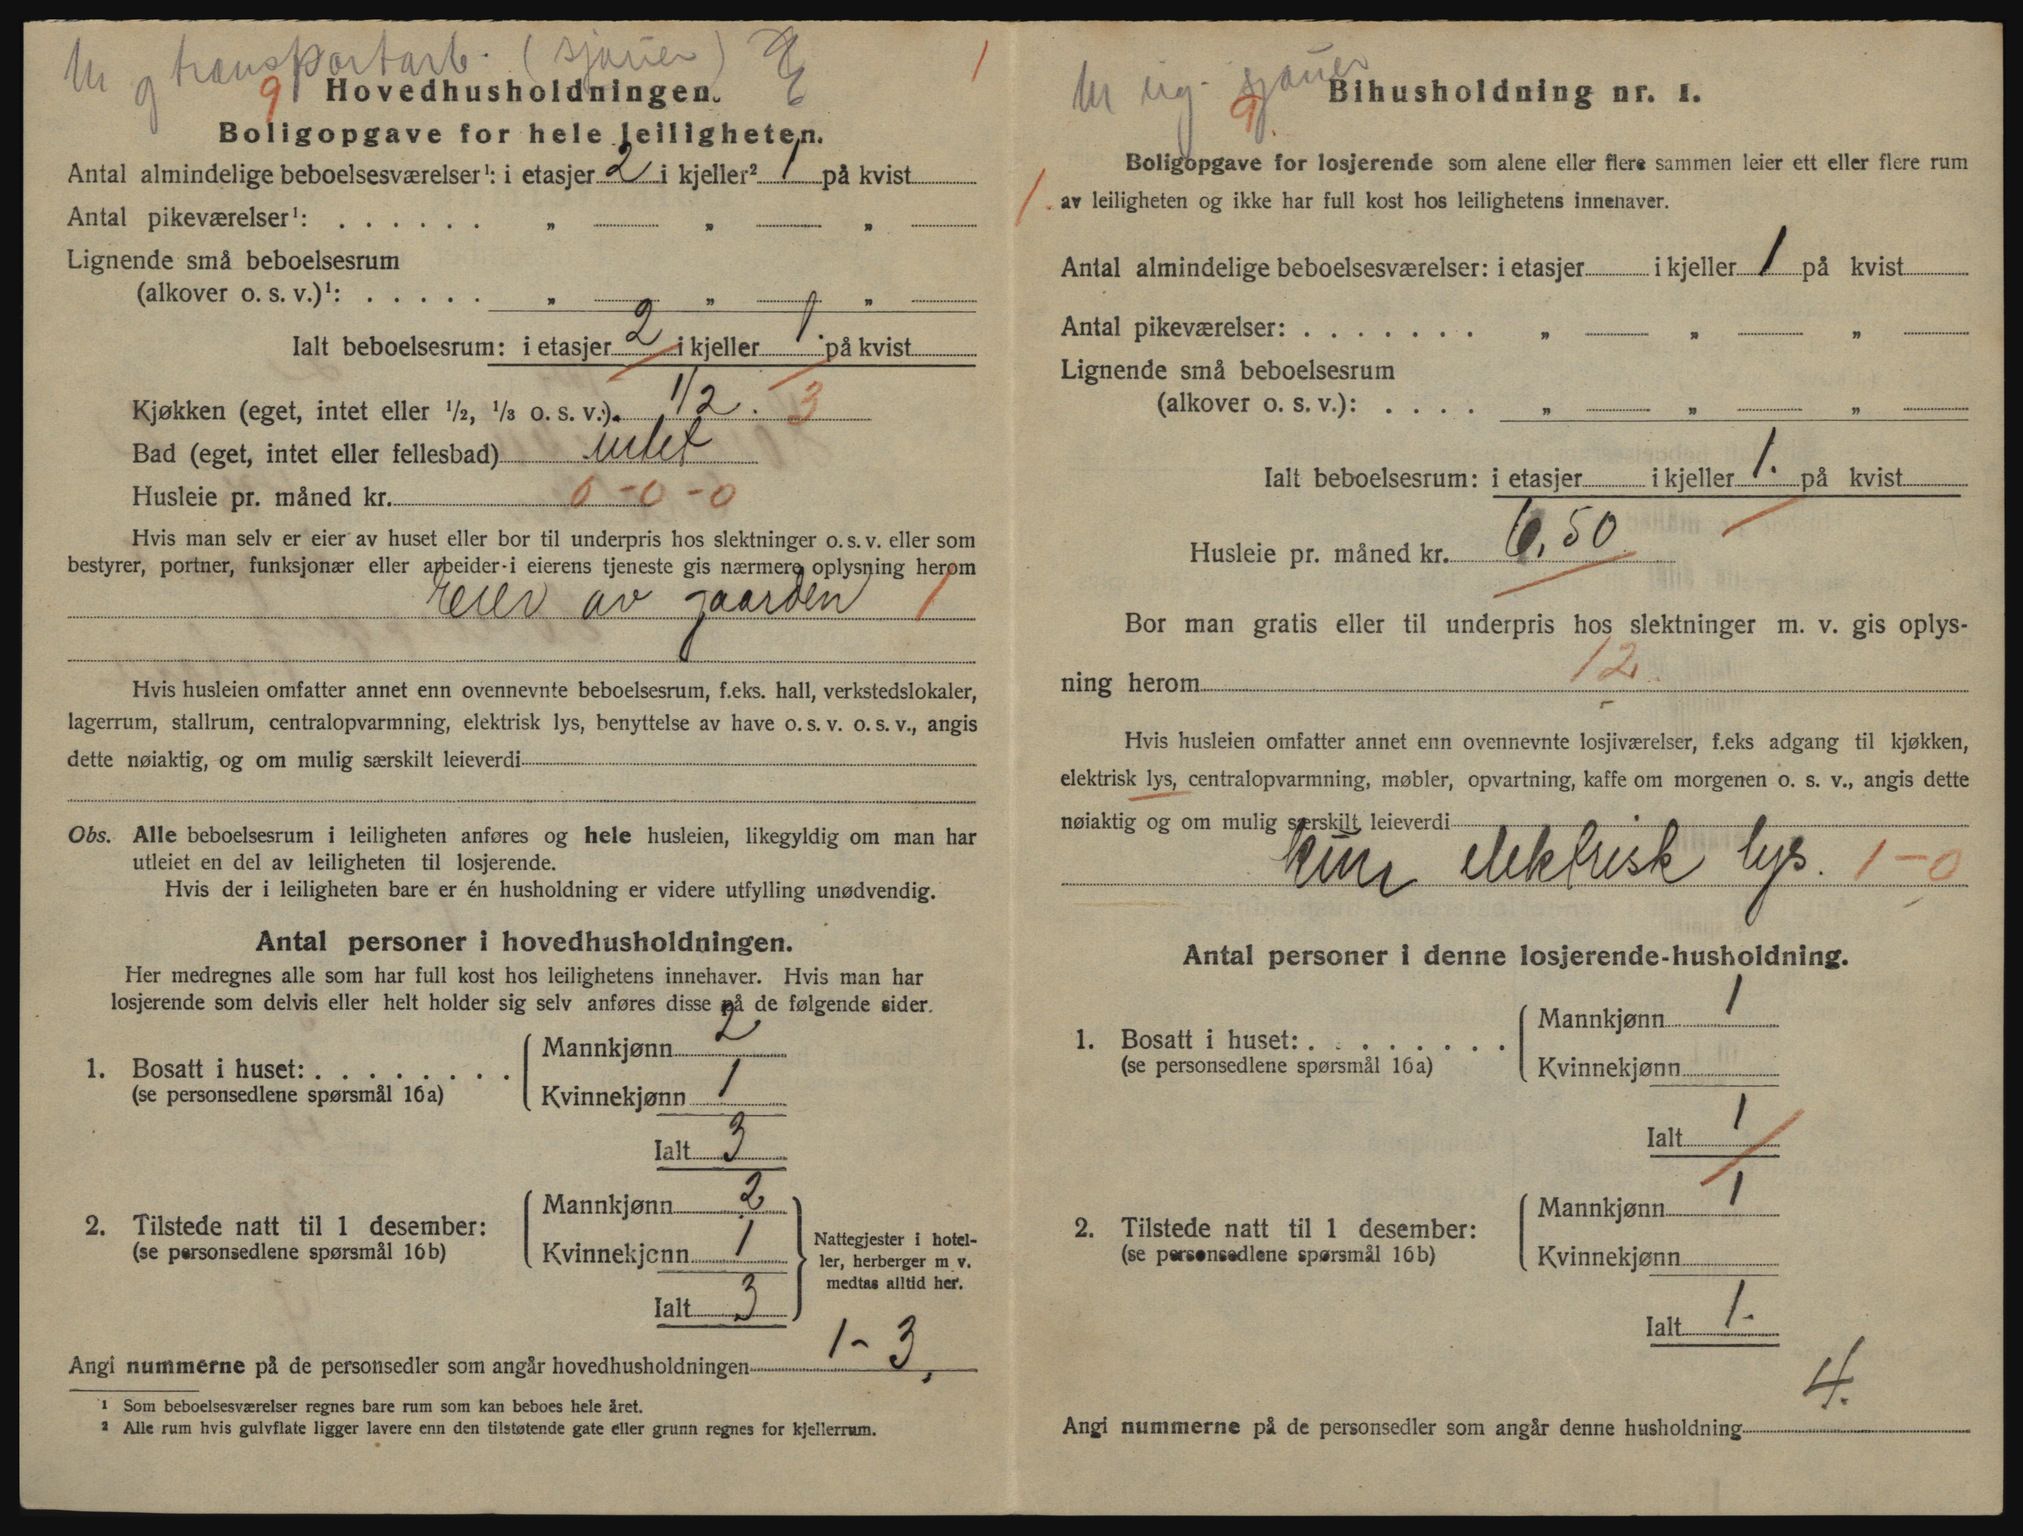 M g transportarb. (sjauer) E
9 1
Hovedhusholdningen.
Boligopgave for hele leiligheten.
Antal almindelige beboelsesværelser¹: i etasjer 2 i kjeller² 1 på kvist
Antal pikeværelser¹: . . . . . . „ „ „
Lignende små beboelsesrum
(alkover o. s. v.)¹: . . . . . „ „ „
Ialt beboelsesrum: i etasjer 2 i kjeller 1. på kvist
Kjøkken (eget, intet eller ¹/₂, ¹/₃ o. s. v.). 1/2. 3
Bad (eget, intet eller fellesbad) intet
Husleie pr. måned kr. 0-0-0
Hvis man selv er eier av huset eller bor til underpris hos slektninger o. s. v. eller som
bestyrer, portner, funksjonær eller arbeider i eierens tjeneste gis nærmere oplysning herom
eier av gaarden 1
Hvis husleien omfatter annet enn ovennevnte beboelsesrum, f.eks. hall, verkstedslokaler,
lagerrum, stallrum, centralopvarmning, elektrisk lys, benyttelse av have o. s. v. o. s. v., angis
dette nøiaktig, og om mulig særskilt leieverdi
Obs. Alle beboelsesrum i leiligheten anføres og hele husleien, likegyldig om man har
utleiet en del av leiligheten til losjerende.
Hvis der i leiligheten bare er én husholdning er videre utfylling unødvendig.
Antal personer i hovedhusholdningen.
Her medregnes alle som har full kost hos leilighetens innehaver. Hvis man har
losjerende som delvis eller helt holder sig selv anføres disse på de følgende sider.
1. Bosatt i huset: . . . . . . . .
(se personsedlene spørsmål 16a)
Mannkjønn 2
Kvinnekjønn 1
Ialt 3
2. Tilstede natt til 1 desember:
(se personsedlene spørsmål 16b)
Mannkjønn 2
Kvinnekjønn 1
Ialt 3
Nattegjester i hotel-
ler, herberger m v.
medtas alltid her.
Angi nummerne på de personsedler som angår hovedhusholdningen 1-3.
¹ Som beboelsesværelser regnes bare rum som kan beboes hele året.
² Alle rum hvis gulvflate ligger lavere enn den tilstøtende gate eller grunn regnes for kjellerrum.
M ug. sjauer
9.
Bihusholdning nr. 1.
Boligopgave for losjerende som alene eller flere sammen leier ett eller flere rum
1. av leiligheten og ikke har full kost hos leilighetens innehaver.
Antal almindelige beboelsesværelser: i etasjer i kjeller 1 på kvist
Antal pikeværelser: . . . . . . . „ „ „
Lignende små beboelsesrum
(alkover o. s. v.): . . . . „ „ „
Ialt beboelsesrum: i etasjer i kjeller 1. på kvist
Husleie pr. måned kr. 6,50
Bor man gratis eller til underpris hos slektninger m. v. gis oplys-
ning herom 12
Hvis husleien omfatter annet enn ovennevnte losjiværelser, f.eks adgang til kjøkken,
elektrisk lys, centralopvarmning, møbler, opvartning, kaffe om morgenen o. s. v., angis dette
nøiaktig og om mulig særskilt leieverdi
kun elektrisk lys. 1-0
Antal personer i denne losjerende-husholdning.
1. Bosatt i huset: . . . . . . . .
(se personsedlene spørsmål 16a)
Mannkjønn 1
Kvinnekjønn
Ialt 1
2. Tilstede natt til 1 desember:
(se personsedlene spørsmål 16b)
Mannkjønn 1
Kvinnekjønn
Ialt 1.
Angi nummerne på de personsedler som angår denne husholdning 4.